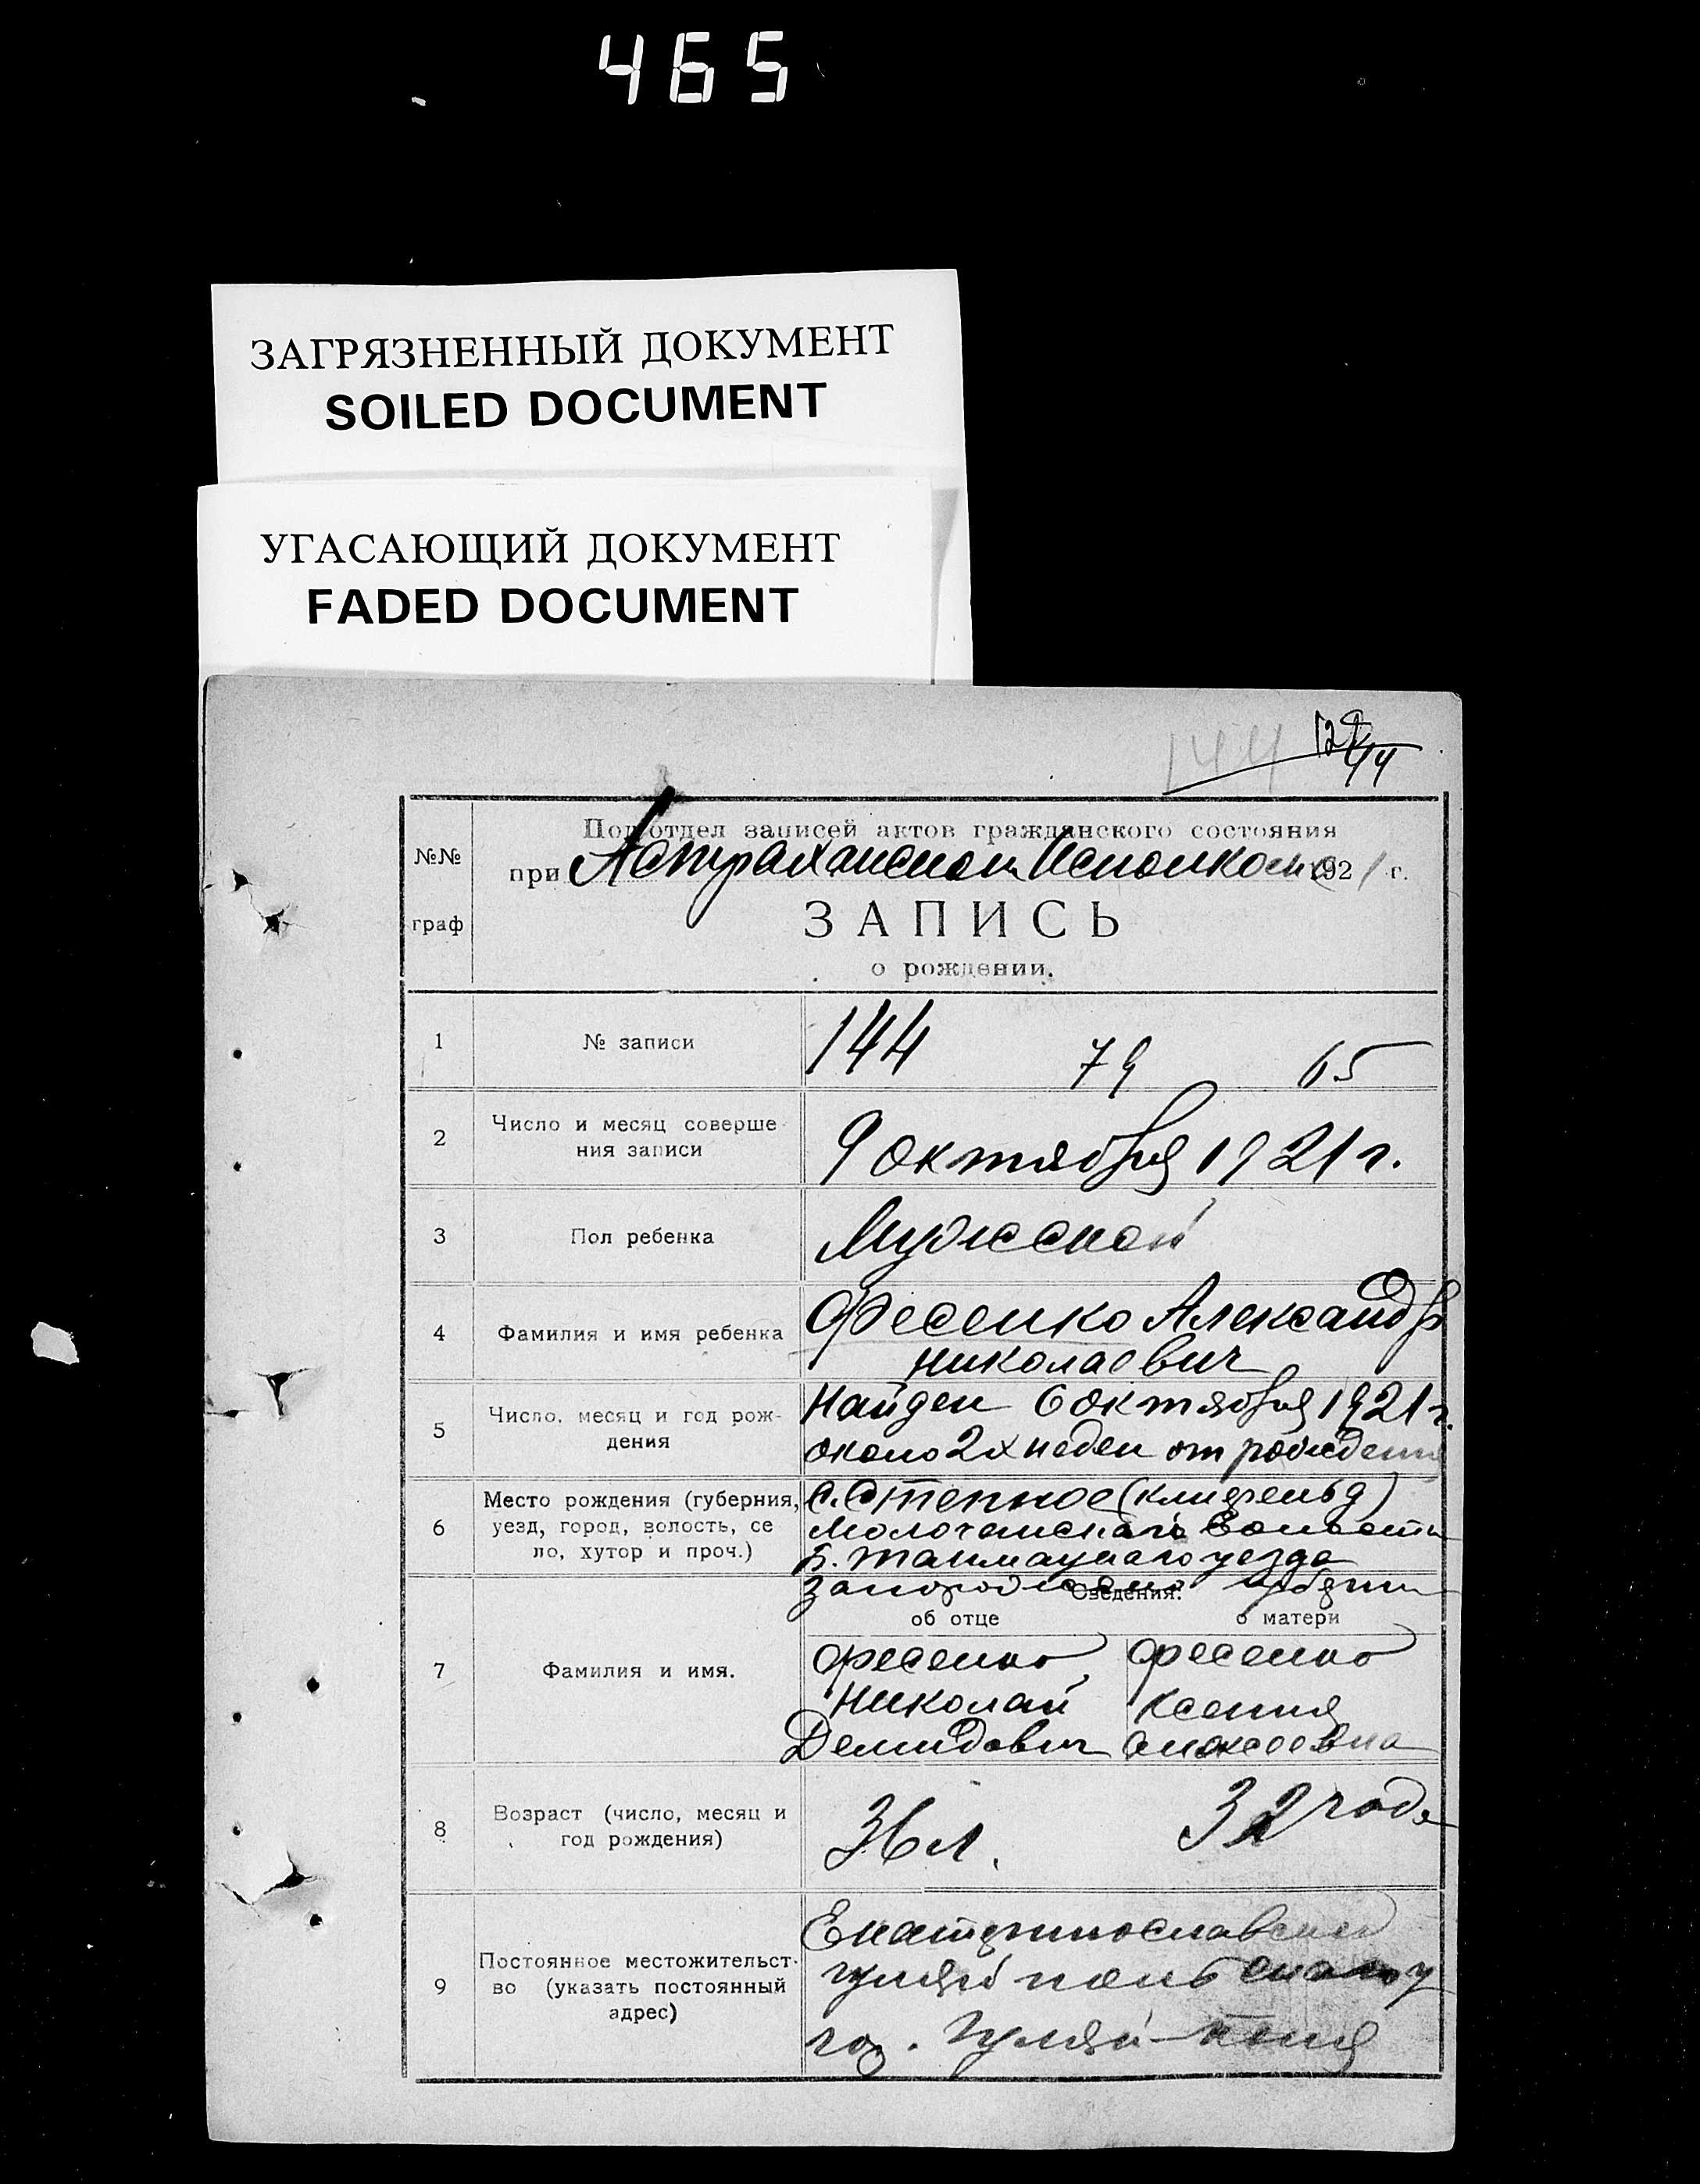 465
ЗАГРЯЗНЕННЫЙ ДОКУМЕНТ
SOILED DOCUMENT
УГАСАЮЩИЙ ДОКУМЕНТ
FADED DOCUMENT
144
№№
граф
Подотдел записей актов гражданского состояния
при Астраханском Исполкоме 1921 г.
ЗАПИСЬ
о рождении.
1
№ записи
144 79 65
2
Число и месяц соверше-
ния записи
9 октября 1921 г.
3
Пол ребенка
Мужской
4
Фамилия и имя ребенка
Фесенко Александр
Николаевич
5
Число, месяц и год рож-
дения
Найден 6 октября 1921 г.
около 2х недел от рождения
6
Место рождения (губерния,
уезд, город, волость, се
ло, хутор и проч.)
с. Степное (Клифельд)
Молочанской волости
Б. Токмацкаго уезда
Запорожской губернии
Сведения:
об отце
о матери
7
Фамилия и имя.
Фесенко
Николай
Демидович
Фесенко
Ксения
Алексеевна
8
Возраст (число, месяц и
год рождения)
36 л.
32 года
9
Постоянное местожительст-
во (указать постоянный
адрес)
Екатеринославской
Гуляй польскаго у
Гуляй-Поля